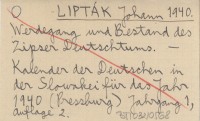 O LIPTÁK Johann 1940.
Werdegang und Bestand des
Zipser Deutschtums. —
Kalender der Deutschen in
der Slowakei für das Jahr
1940 (Pressburg) Jahrgang 7,
Auflage 2.